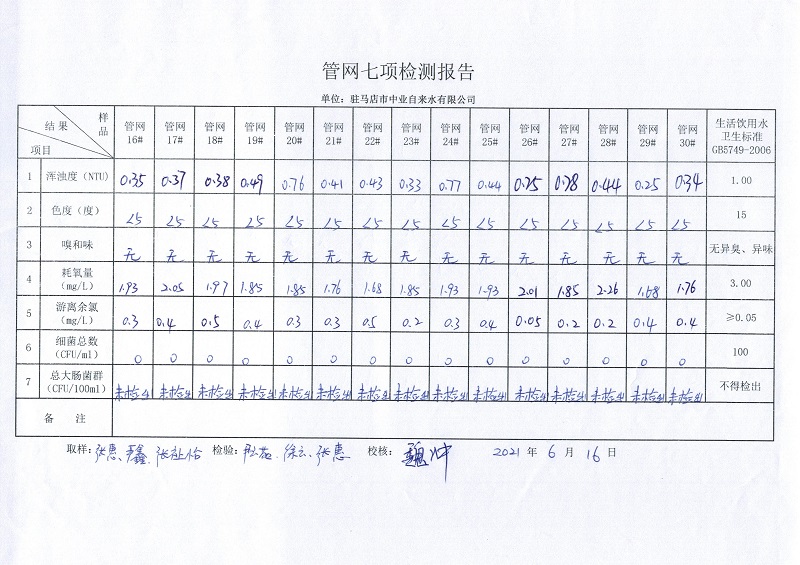 管网七项检测报告
单位：驻马店市中业自来水有限公司
结果 样品 项目 管网16# 管网17# 管网18# 管网19# 管网20# 管网21# 管网22# 管网23# 管网24# 管网25# 管网26# 管网27# 管网28# 管网29# 管网30# 生活饮用水卫生标准GB5749-2006
1 浑浊度（NTU) 0.35 0.37 0.38 0.49 0.76 0.41 0.43 0.33 0.77 0.44 0.25 0.78 0.44 0.25 0.34 1.00
2 色度（度） <5 <5 <5 <5 <5 <5 <5 <5 <5 <5 <5 <5 <5 <5 <5 15
3 嗅和味 无 无 无 无 无 无 无 无 无 无 无 无 无 无 无 无异臭、异味
4 耗氧量（mg/L） 1.93 2.05 1.97 1.85 1.85 1.76 1.68 1.85 1.93 1.93 2.01 1.85 2.26 1.68 1.76 3.00
5 游离余氯（mg/L） 0.3 0.4 0.5 0.4 0.3 0.3 0.5 0.2 0.3 0.4 0.05 0.2 0.2 0.4 0.4 ≥0.05
6 细菌总数（CFU/ml） 0 0 0 0 0 0 0 0 0 0 0 0 0 0 0 100
7 总大肠菌群（CFU/100ml) 未检出 未检出 未检出 未检出 未检出 未检出 未检出 未检出 未检出 未检出 未检出 未检出 未检出 未检出 未检出 不得检出
备 注
取样：张惠、 检验： 徐云、张惠 校核：魏冲 2021 年 6 月 16 日